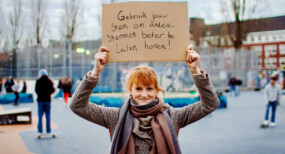 Gebruik jouw
Stem om andere
Stemmen beter te
laten horen!